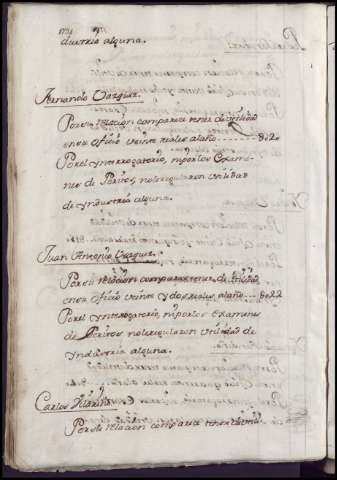 dustria alguna.
Fernando Vazquez.
Por su relacion comparece tener de utilidad
en su oficio veinte reales al año ------ 8020
Por el Ynterrogatorio, ni por los Exame-
nes de Peritos, no le regularon utilidad
de yndustria alguna.
Juan Antonio Vazquez.
Por su relacion comparece tener de utilidad
en su oficio veinte y dos reales al año --- 8022
Por el Ynterrogatorio, ni por los Examenes
de Peritos no le regularon utilidad de
yndustria alguna.
Carlos
Por su relacion comparece tener utilid.